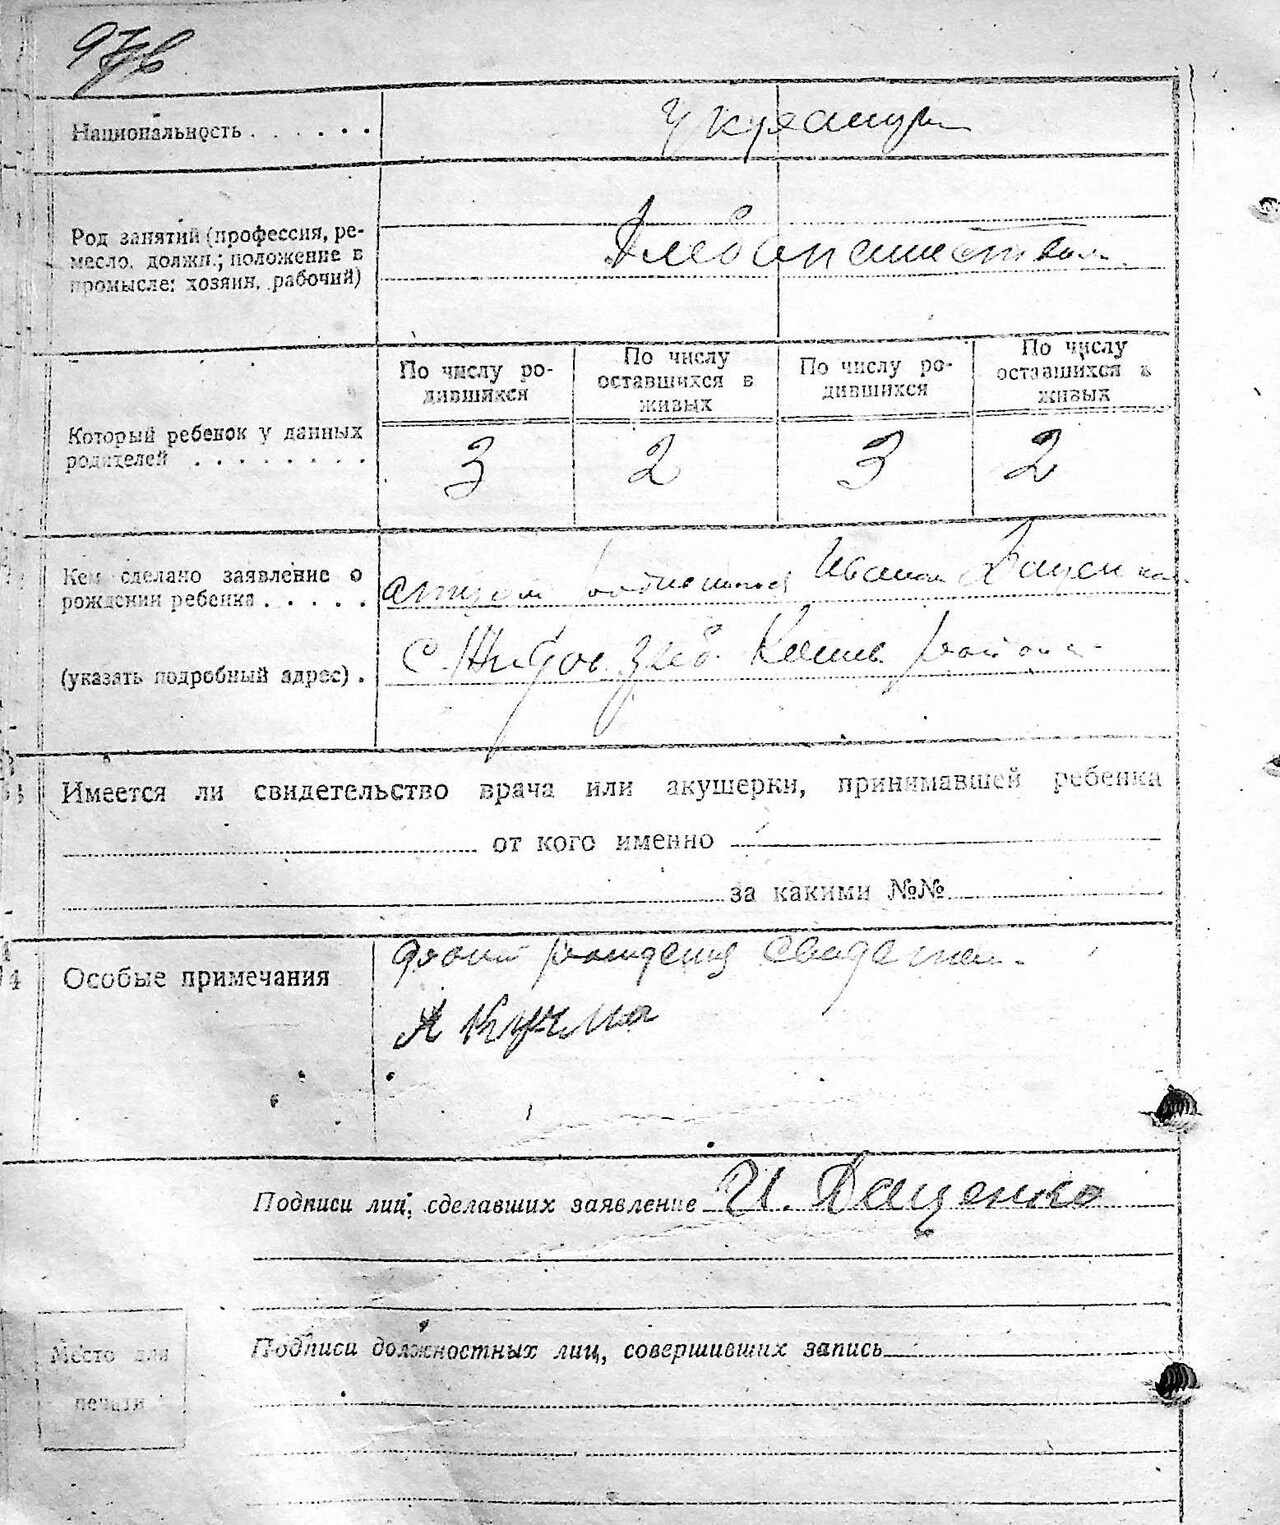 Национальность . . . . . .
Род занятий (профессия, ре-
месло, должн.; положение в
промысле: хозяин, рабочий)
По числу ро-
дившихся
По числу
оставшихся в
живых
По числу ро-
дившихся
По числу
оставшихся в
живых
Который ребенок у данных
родителей . . . . . . . .
3 2 3 2
Кем сделано заявление о
рождении ребенка . . . . .
Иваном Даценком
(указать подробный адрес) .
с. района
Имеется ли свидетельство врача или акушерки, принимавшей ребенка
от кого именно
за какими №№
14
Особые примечания
рождения
А Кучма
Подписи лиц, сделавших заявление И. Даценко
Подписи должностных лиц, совершивших запись
Место для
печати